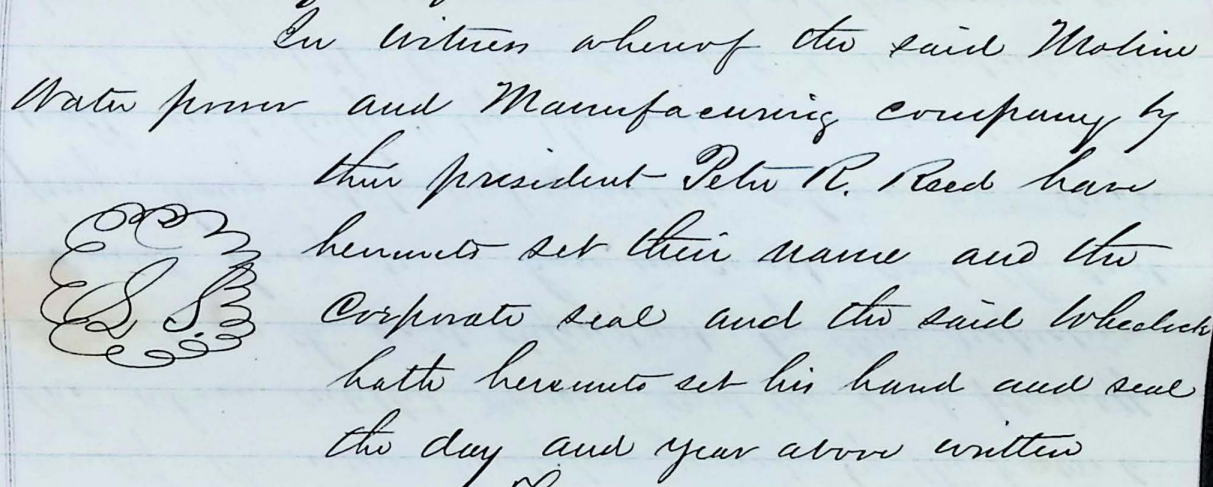 In witness whereof the said Moline
Water power and Manufacuring company by
their president Peter R. Reed have
hereunto set their name and the
L. S.
Corporate seal and the said Wheelock
hath hereunto set his hand and seal
the day and year above written